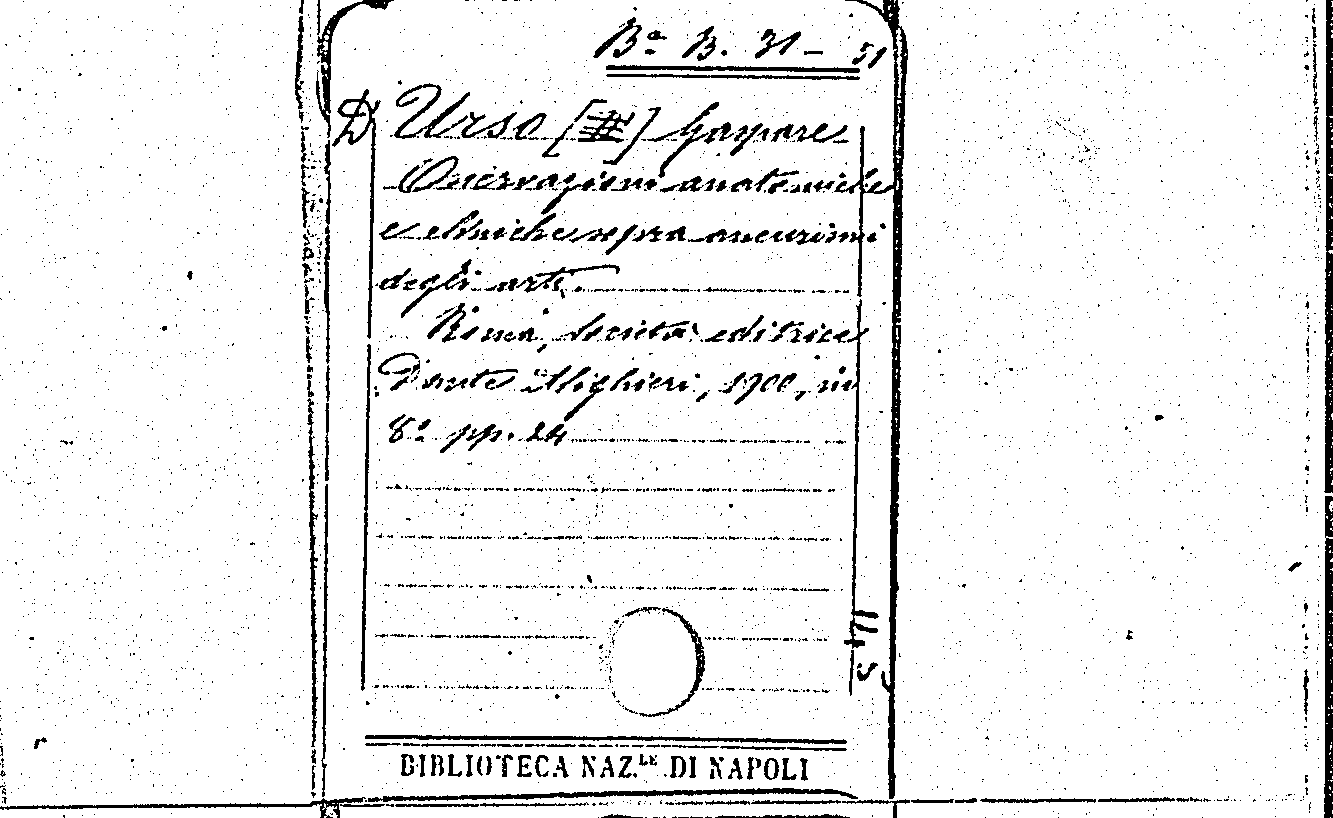 Bª B. 31 - 51
D'Urso [] Gaspare
Osservazioni anatomiche
e cliniche sopra aneurismi
degli arti.
Roma, Società editrice
Dante Alighieri, 1900, in
8º pp. 24
BIBLIOTECA NAZ.LE DI NAPOLI